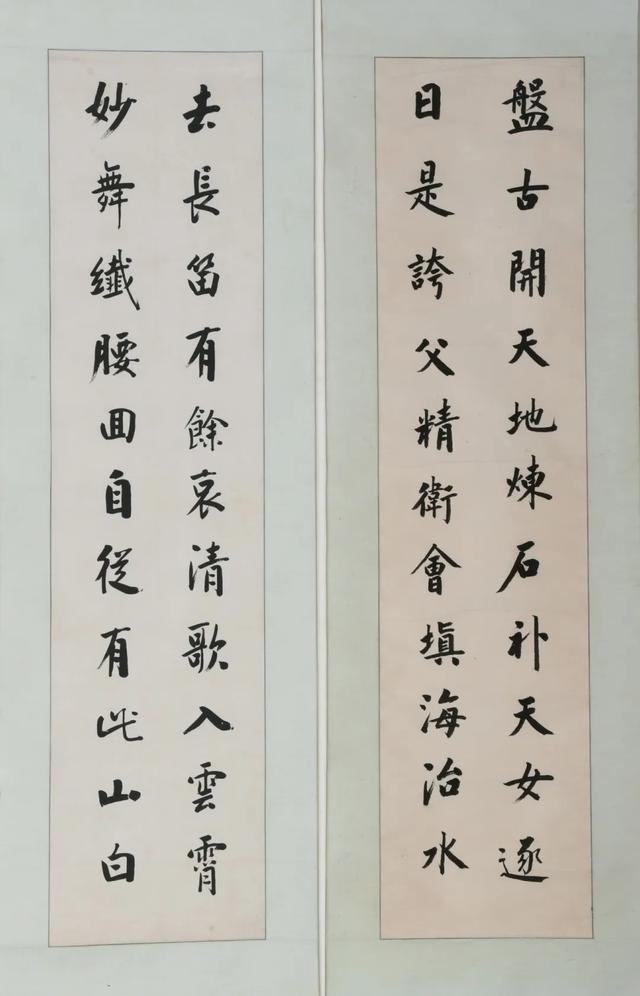 盤古開天地煉石补天女逐
日是誇父精衛會填海治水
去長笛有餘哀清歌入雲霄
妙舞纖腰回自從有此山白